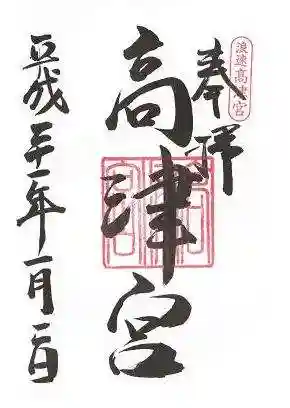 浪速高津宮
奉拝
高津宮
平成二十一年一月二日